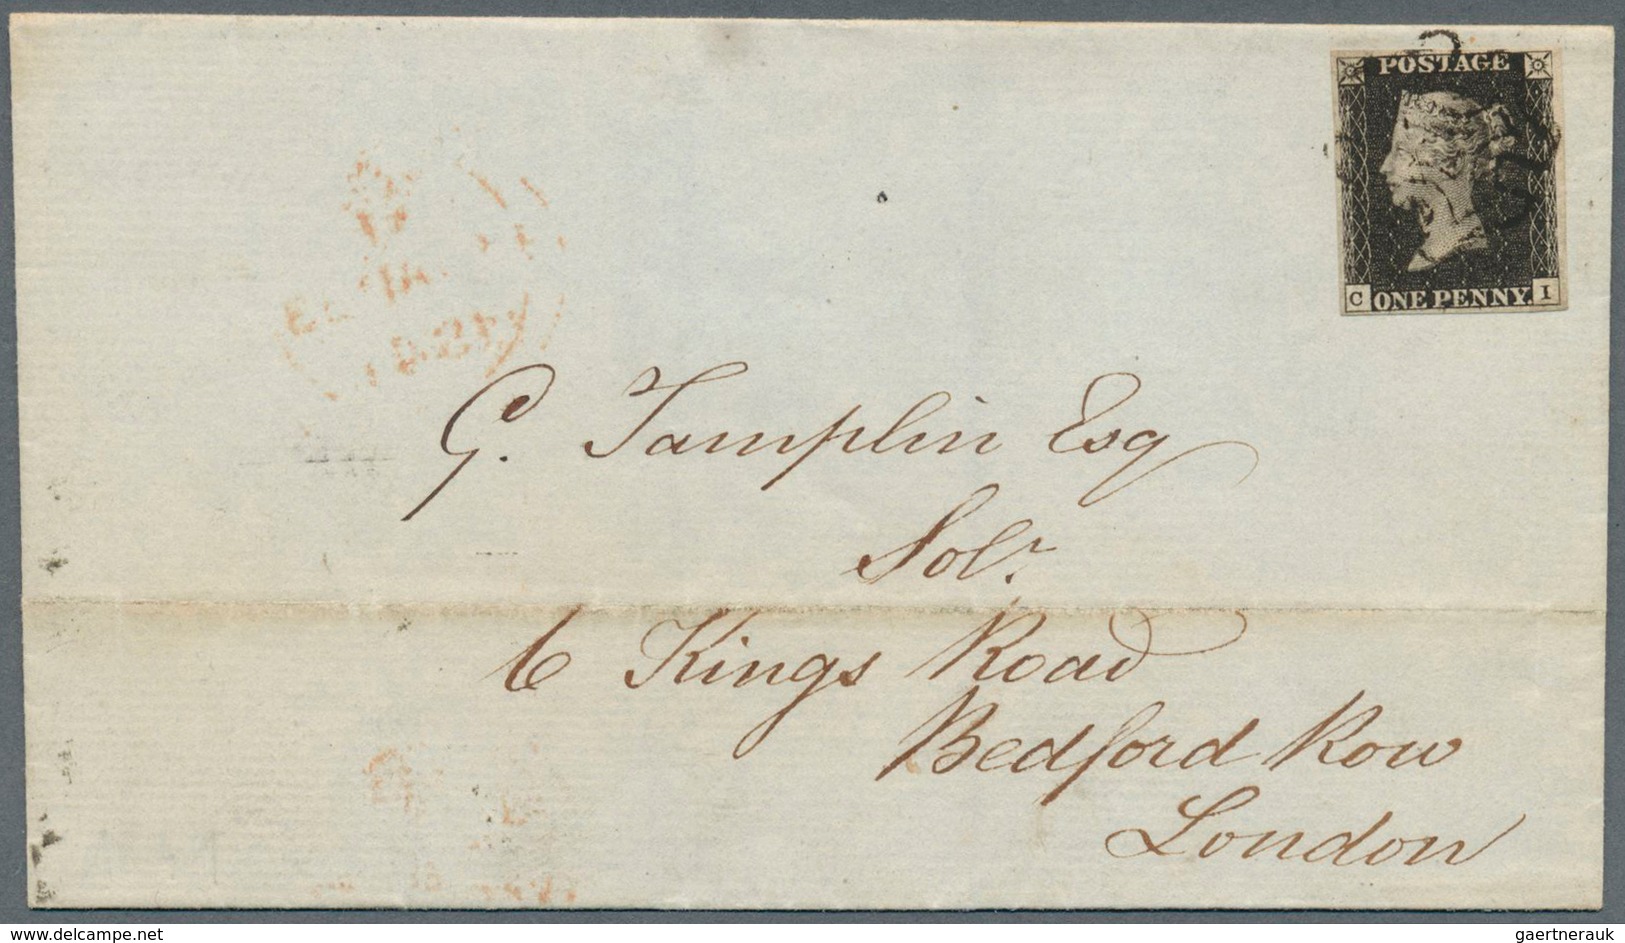 POSTAGE
C ONE PENNY. I
G. Tamplin Esq
Solr.
6 Kings Road
Bedford Row
London
www.delcampe.net
gaertnerauk